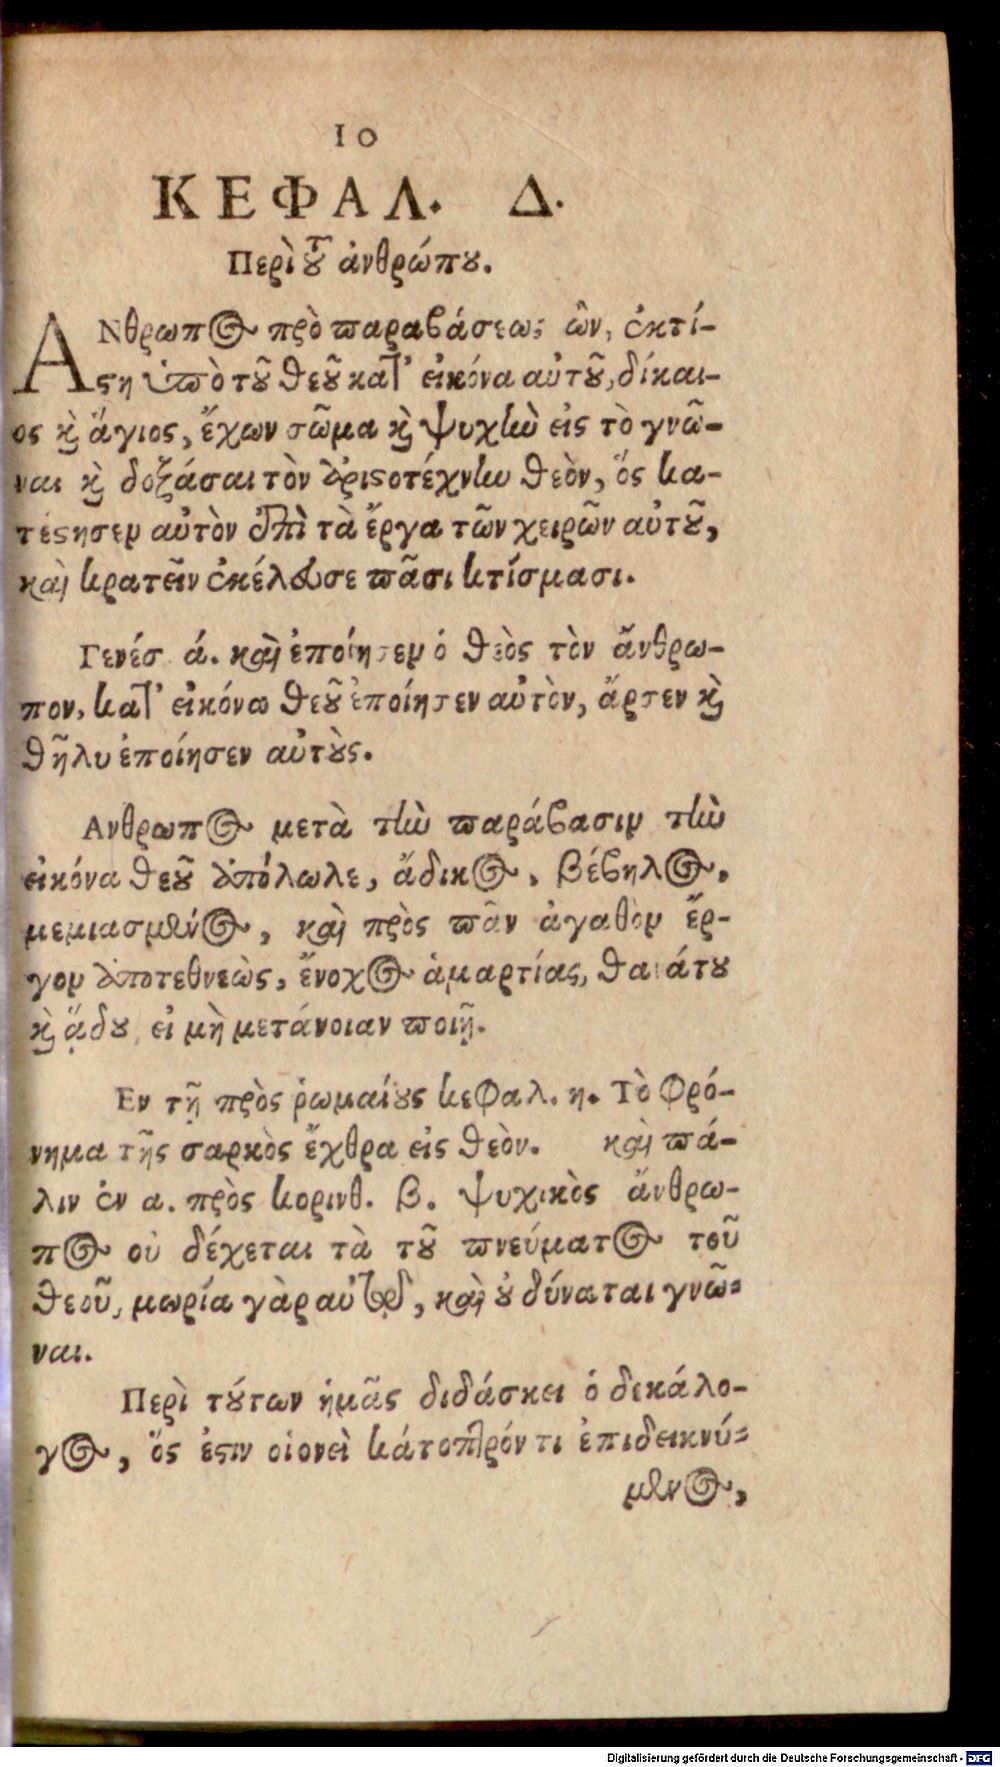 10
ΚΕΦΑΛ. Δ.
Περὶ τȣ͂ ἀνθρώπȣ.
ΑΝθρωπος πρὸ ϖαραβάσεως ὢν, ἐκτί-
ϛη ὑπὸ τȣ͂ θεȣ͂ κατ' εἰκόνα αὐτȣ͂, δίκαι-
ος ϗ ἅγιος, ἔχων σῶμα ϗ ψυχὴν εἰς τὸ γνῶ-
ναι ϗ δοξάσαι τὸν ἀριϛοτέχνην θεὸν, ὅς κα-
τέϛησεν αὐτὸν ἐπὶ τὰ ἔργα τῶν χειρῶν αὐτȣ͂,
καὶ κρατεῖν ἐκέλευσε ϖᾶσι κτίσμασι.
Γενέσ. ά. καὶ ἐποίησεν ὁ θεὸς τὸν ἄνθρω-
πον, κατ' εἰκόνα θεȣ͂ ἐποίησεν αὐτὸν, ἄρσεν ϗ
θῆλυ ἐποίησεν αὐτȣ̀ς.
Ανθρωπος μετὰ τὴν ϖαράβασιν τὴν
εἰκόνα θεȣ͂ ἀπόλωλε, ἄδικος, βέβηλος,
μεμιασμένος, καὶ πρὸς ϖᾶν ἀγαθὸν ἔρ-
γον ἀποτεθνεὼς, ἔνοχος ἁμαρτίας, θανάτȣ
ϗ ᾅδȣ, εἰ μὴ μετάνοιαν ϖοιῇ.
Εν τῇ πρὸς ῥωμαίȣς κεφαλ. η. Τὸ φρό-
νημα τῆς σαρκὸς ἔχθρα εἰς θεὸν. καὶ ϖά-
λιν ἐν α. πρὸς κορινθ. β. ψυχικὸς ἄνθρω-
πος οὐ δέχεται τὰ τȣ͂ ϖνεύματος τοῦ
θεοῦ, μωρία γὰρ αὐτῷ, καὶ ȣ̓ δύναται γνῶ-
ναι.
Περὶ τȣ́των ἡμᾶς διδάσκει ὁ δεκάλο-
γος, ὅς ἐϛιν οἱονεὶ κάτοπτρόν τι ἐπιδεικνύ-
μενος,
Digitalisierung gefördert durch die Deutsche Forschungsgemeinschaft - DFG